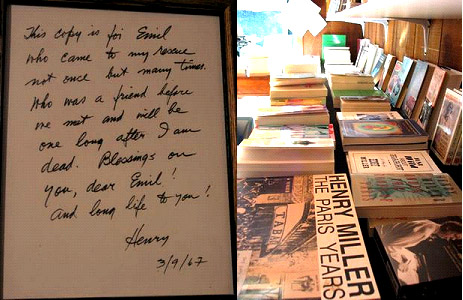 This copy is for Emil
who came to my rescue
not once but many times.
Who was a friend before
we met and will be
one long after I am
dead. Blessings on
you, dear Emil!
And long life to you!
Henry
3/9/67
HENRY MILLER
THE PARIS YEARS
TABAC